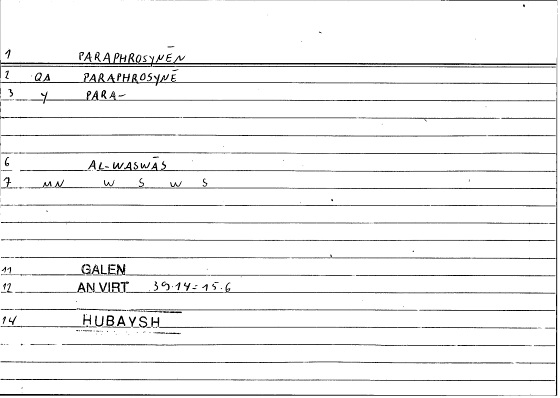 1 PARAPHROSYNĒN
2 QA PARAPHROSYNĒ
3 Y PARA-
6 AL-WASWĀS
7 MN W S W S
11 GALEN
12 AN VIRT 39.14=15.6
14 HUBAYSH